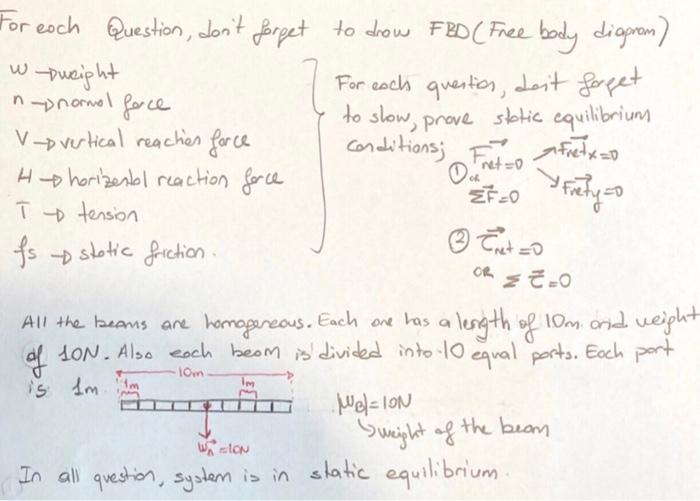 For each Question, don't forget to draw FBD (Free body diagram)
w → weight
n → normal force
V → vertical reaction force
H → horizental reaction force
T → tension
fs → static friction.
For each question, don't forget
to slow, prove static equilibrium
conditions; ① Fnet=0 Fnetx=0
or Fnety=0
ΣF=0
② τnet=0
OR Σ τ=0
All the beams are homogeneous. Each one has a length of 10m and weight
of 10N. Also each beam is divided into 10 equal parts. Each part
is 1m.
10m
1m 1m
|WB|=10N
↳ weight of the beam
=10N
In all question, system is in static equilibrium.